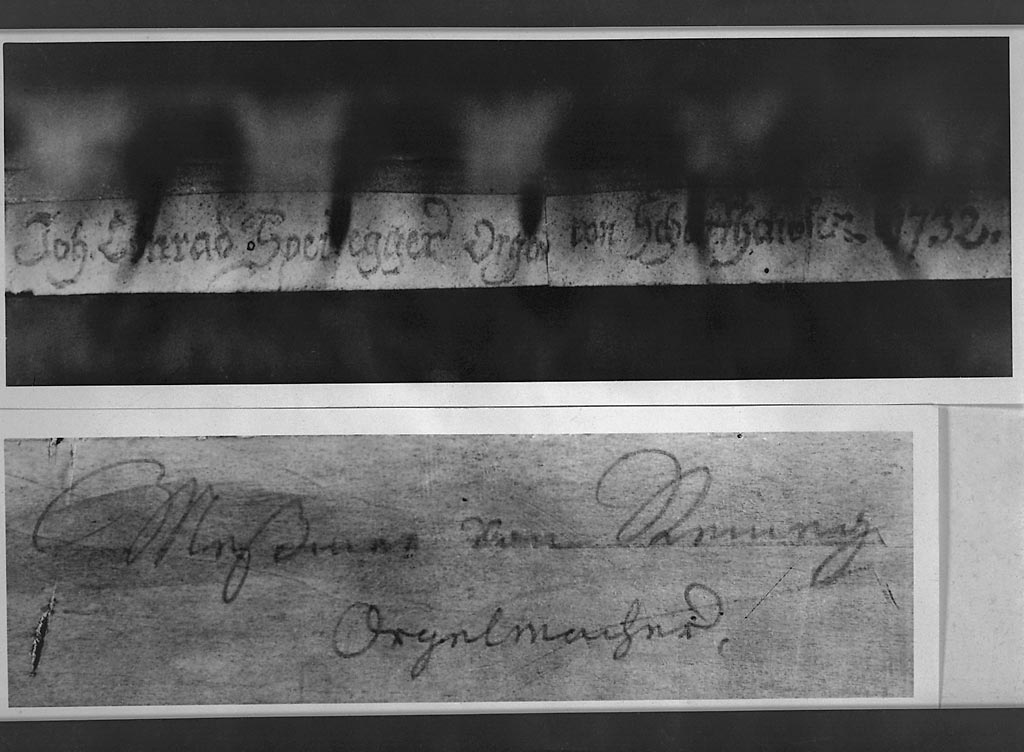 Joh. Conrad Speisegger Orgel von Schaffhausen 1732.
Meßmer von Remung
Orgelmacher.